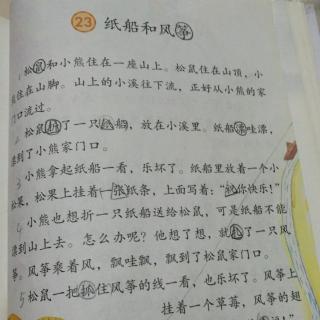 23 纸船和风筝
1 松鼠和小熊住在一座山上。松鼠住在山顶，小
熊住在山脚。山上的小溪往下流，正好从小熊的家
门口流过。
2 松鼠折了一只纸船，放在小溪里。纸船漂哇漂，
漂到了小熊家门口。
3 小熊拿起纸船一看，乐坏了。纸船里放着一个小
松果，松果上挂着一张纸条，上面写着：“祝你快乐！”
4 小熊也想折一只纸船送给松鼠，可是纸船不能
漂到山上去。怎么办呢？他想了想，就扎了一只风
筝。风筝乘着风，飘哇飘，飘到了松鼠家门口。
5 松鼠一把抓住风筝的线一看，也乐坏了。风筝上
挂着一个草莓，风筝的翅